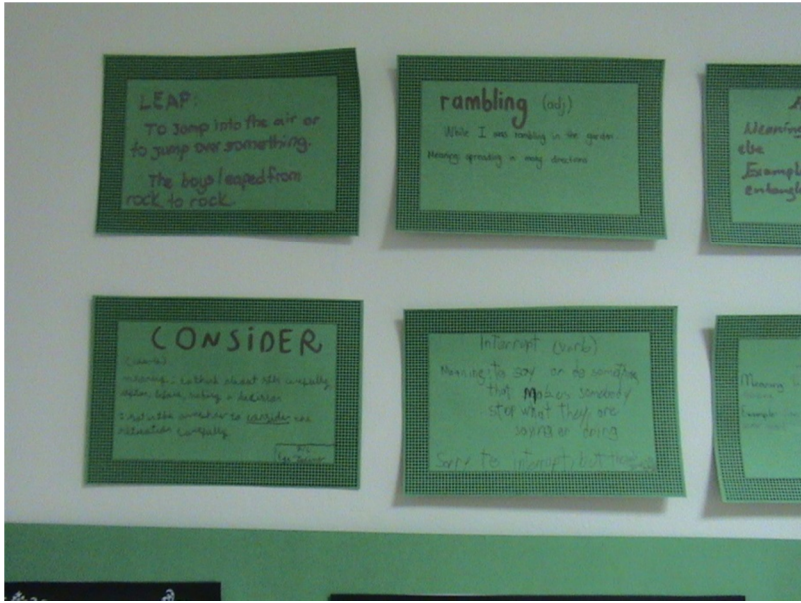 LEAP:
To Jomp into the air or
to jump over something.
The boys leaped from
rock to rock
rambling (adj)
While I was rambling in the garden
Meaning spreading in many directions
Meaning
else
Exampl
entangle
CONSIDER
meaning: to think about sth carefully,
often, before, taking a decision
to consider the
situation carefully
Interrupt (verb)
Meaning: to say or do something
that Makes somebody
stop what they are
saying or doing
Sorry to interrupt, but
Meaning
Example